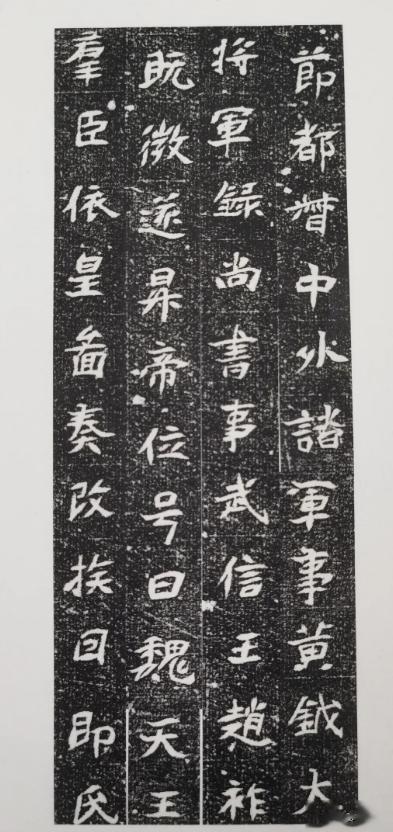 節都督中外諸軍事黃鉞大
将軍録尚書事武信王趙祚
既微遂昇帝位号曰魏天王
羣臣依皇啚奏改族囙即氏